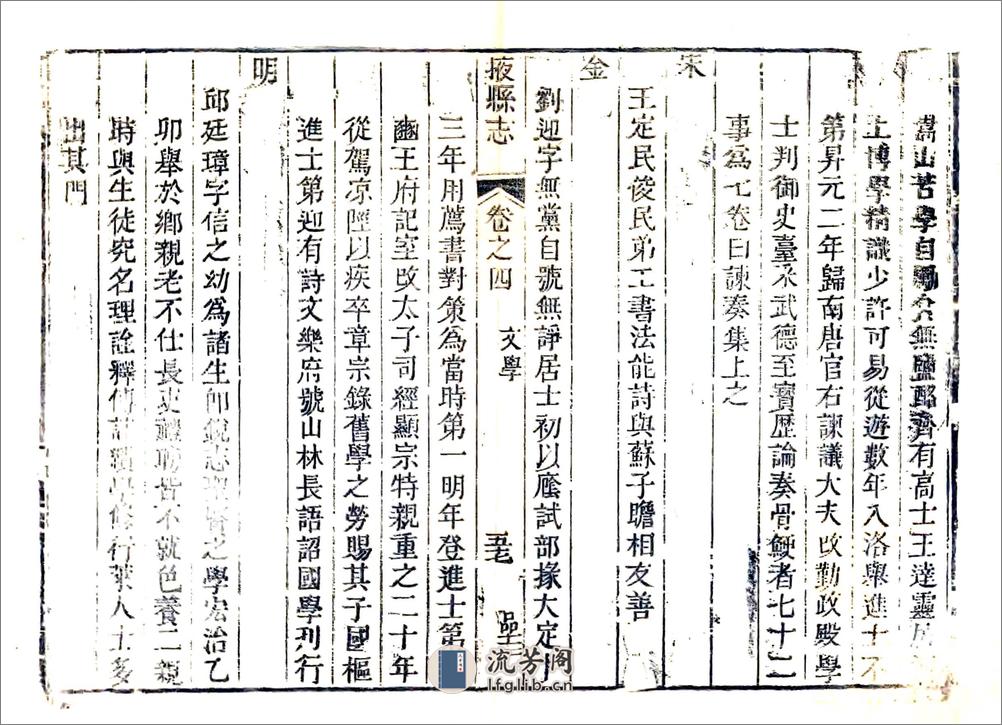 嵩山苦學自勵無鹽鄗齊有高士王達靈居
上博學精識少許可易從遊數年入洛舉進士不
第昇元二年歸南唐官右諫議大夫改勤政殿學
士判御史臺采武德至寶歷論奏骨鯁者七十二
事為七卷曰諫奏集上之
宋
王定民俊民弟工書法能詩與蘇子瞻相友善
金
劉迎字無黨自號無諍居士初以廕試部掾大定十
掖縣志
卷之四
文學
三年用薦書對策為當時第一明年登進士第
豳王府記室改太子司經顯宗特親重之二十年
從駕涼陘以疾卒章宗錄舊學之勞賜其子國樞
進士第迎有詩文樂府號山林長語詔國學刊行
明
邱廷璋字信之幼為諸生即銳志聖賢之學宏治乙
卯舉於鄉親老不仕長吏禮聘皆不就色養二親
時與生徒究名理詮釋傳註績學修行萊人士多
出其門
流芳阁
lfglib.cn